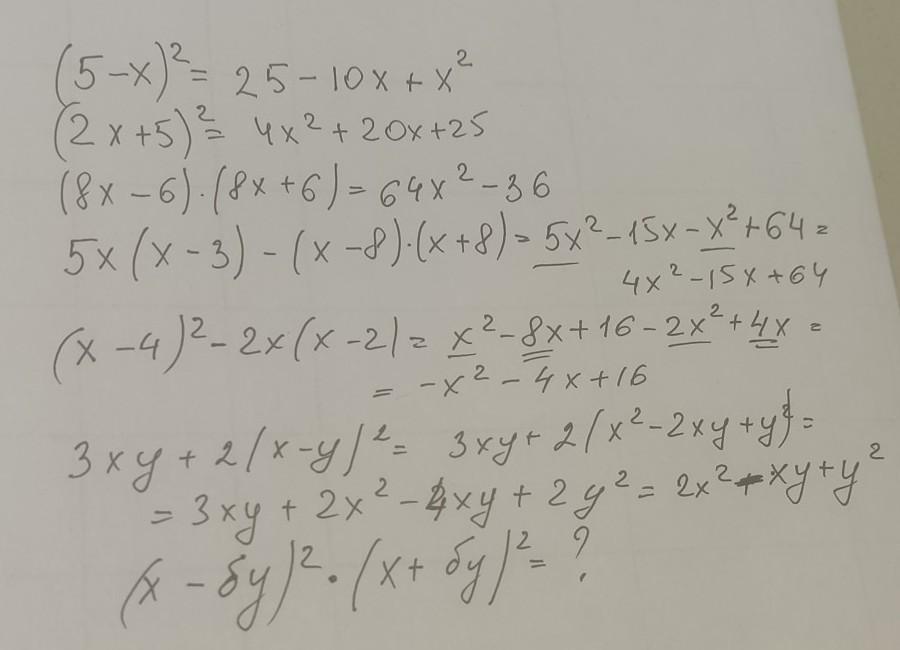 (5-x)²= 25-10x+x²
(2x+5)²= 4x²+20x+25
(8x-6)·(8x+6)=64x²-36
5x(x-3)-(x-8)·(x+8)=5x²-15x-x²+64=
4x²-15x+64
(x-4)²-2x(x-2)= x²-8x+16-2x²+4x=
= -x²-4x+16
3xy+2(x-y)²= 3xy+2(x²-2xy+y²)=
=3xy+2x²-4xy+2y²=2x²-xy+y²
(x-бy)²·(x+бy)²=?